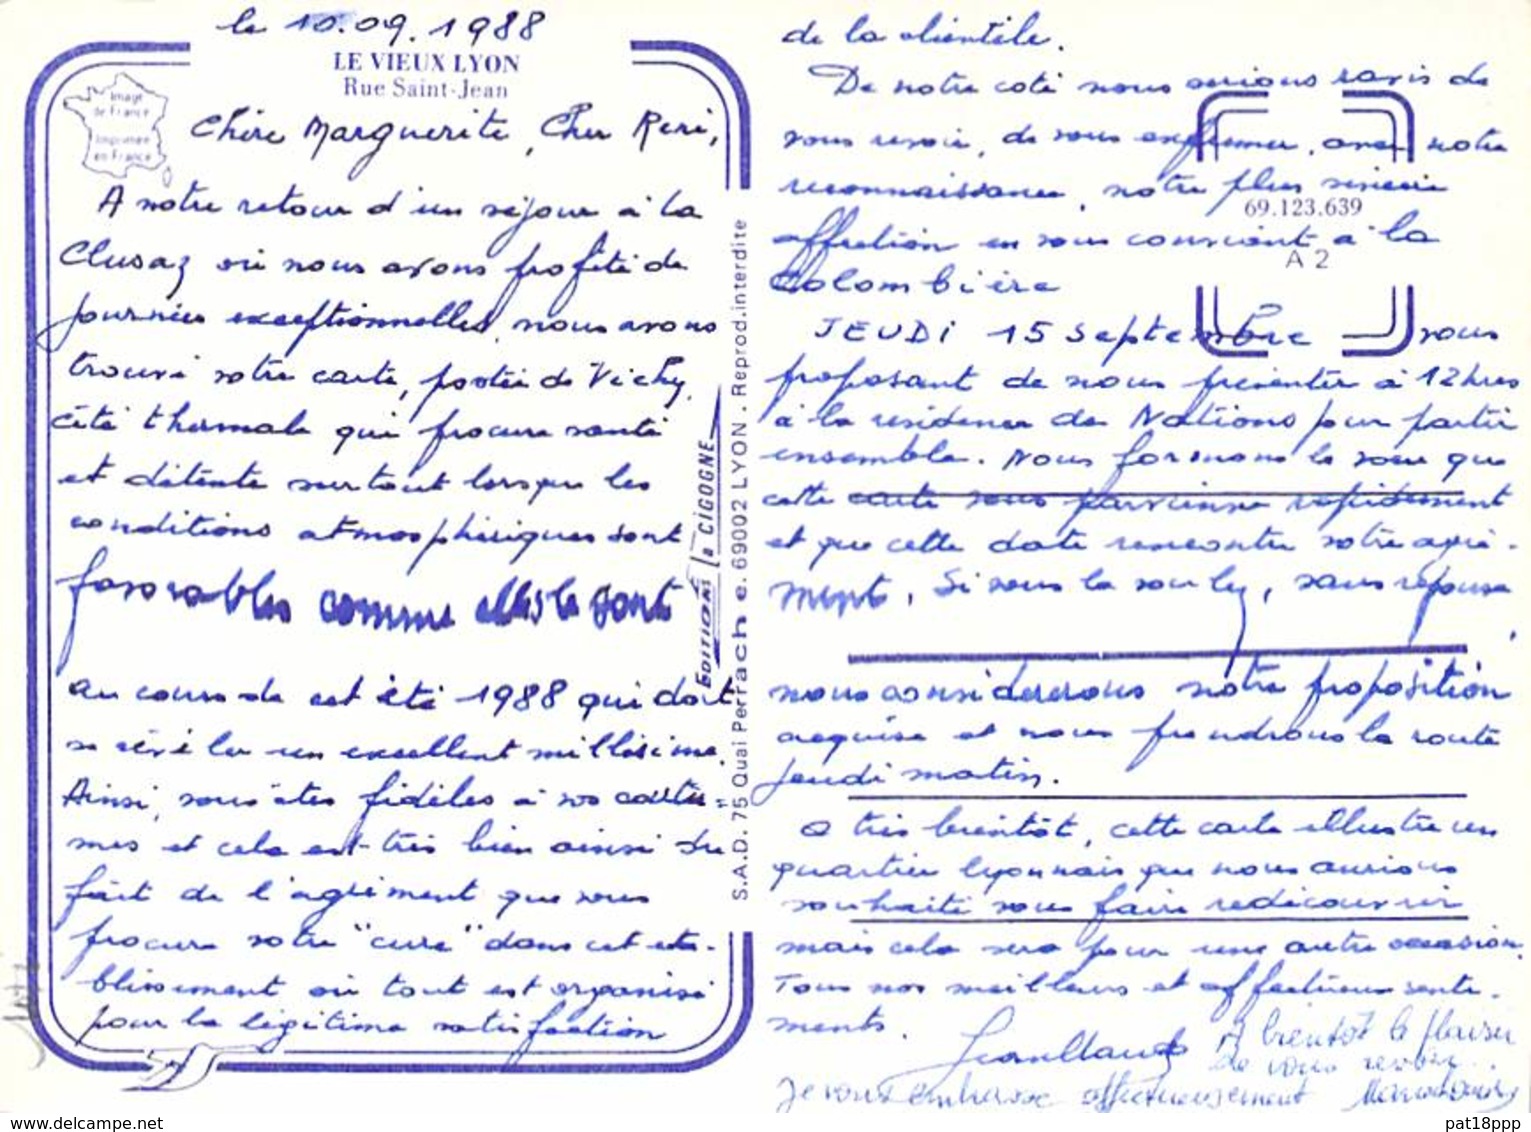 le 10.09.1988
LE VIEUX LYON
Rue Saint-Jean
Image
de France
Imprimée
en France
Chère Marguerite, Cher René,
A notre retour d'un séjour à la
Clusaz où nous avons profité de
journées exceptionnelles, nous avons
trouvé votre carte, postée de Vichy,
cité thermale qui procure santé
et détente surtout lorsque les
conditions atmosphériques sont
favorables comme elles le sont
au cours de cet été 1988 qui doit
se révéler un excellent millésime.
Ainsi, vous êtes fidèles à vos coutu=
mes et cela est très bien ainsi du
fait de l'agrément que vous
procure votre "cure" dans cet éta-
blissement où tout est organisé
pour la légitime satisfaction
EDITIONS la CIGOGNE
S.A.D. 75 Quai Perrache. 69002 LYON. Reprod. interdite
de la clientèle.
De notre coté nous serions ravis de
vous revoir, de vous exprimer, avec notre
reconnaissance, notre plus sincère
69.123.639
affection en vous conviant à la
A 2
Colombière
JEUDI 15 Septembre vous
proposant de nous présenter à 12 hres
à la résidence des Nations pour partir
ensemble. Nous formons le voeu que
cette carte vous parvienne rapidement
et que cette date rencontre votre agré-
ment. Si vous le voulez, sans réponse,
nous considérerons notre proposition
acquise et nous prendrons la route
jeudi matin.
A très bientôt, cette carte illustre un
quartier lyonnais que nous aurions
souhaité vous faire redécouvrir
mais cela sera pour une autre occasion.
Tous nos meilleurs et affectueux senti-
ments.
Jean Claude
A bientôt le plaisir
de vous revoir...
Je vous embrasse affectueusement
pat18ppp